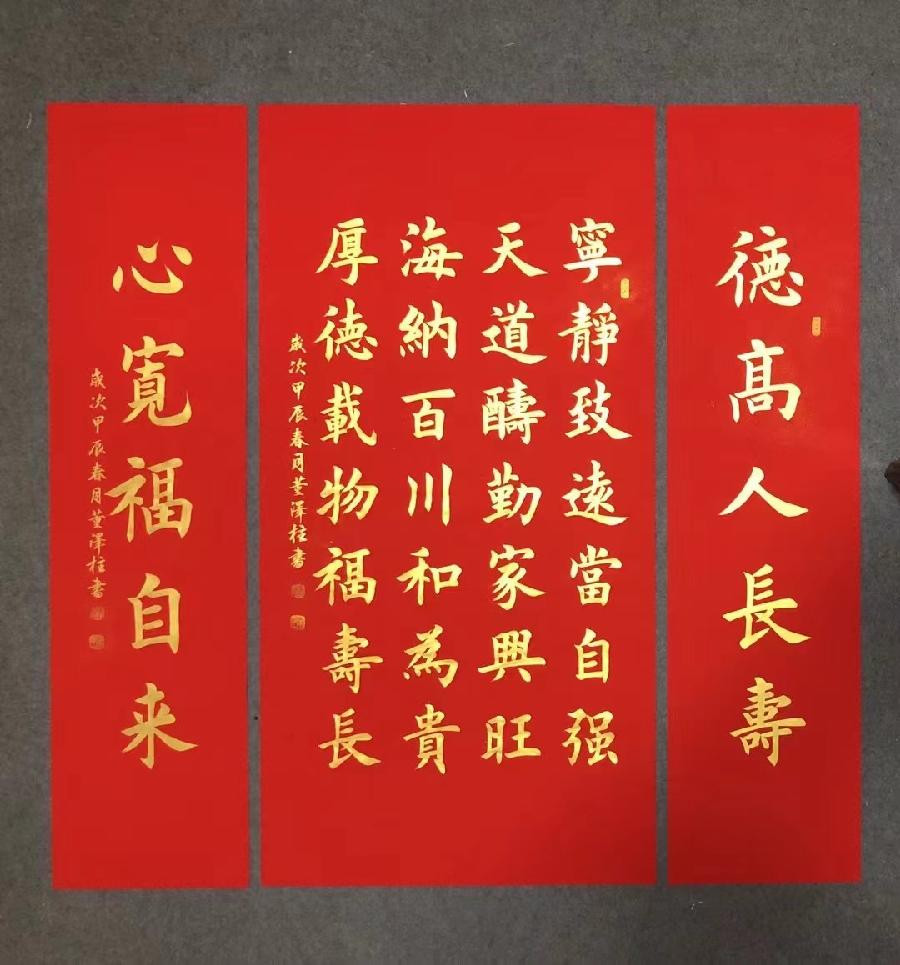 德高人長壽
寧靜致遠當自强
天道酬勤家興旺
海納百川和為貴
厚德載物福壽長
歲次甲辰春月董澤柱書
心寬福自来
歲次甲辰春月董澤柱書